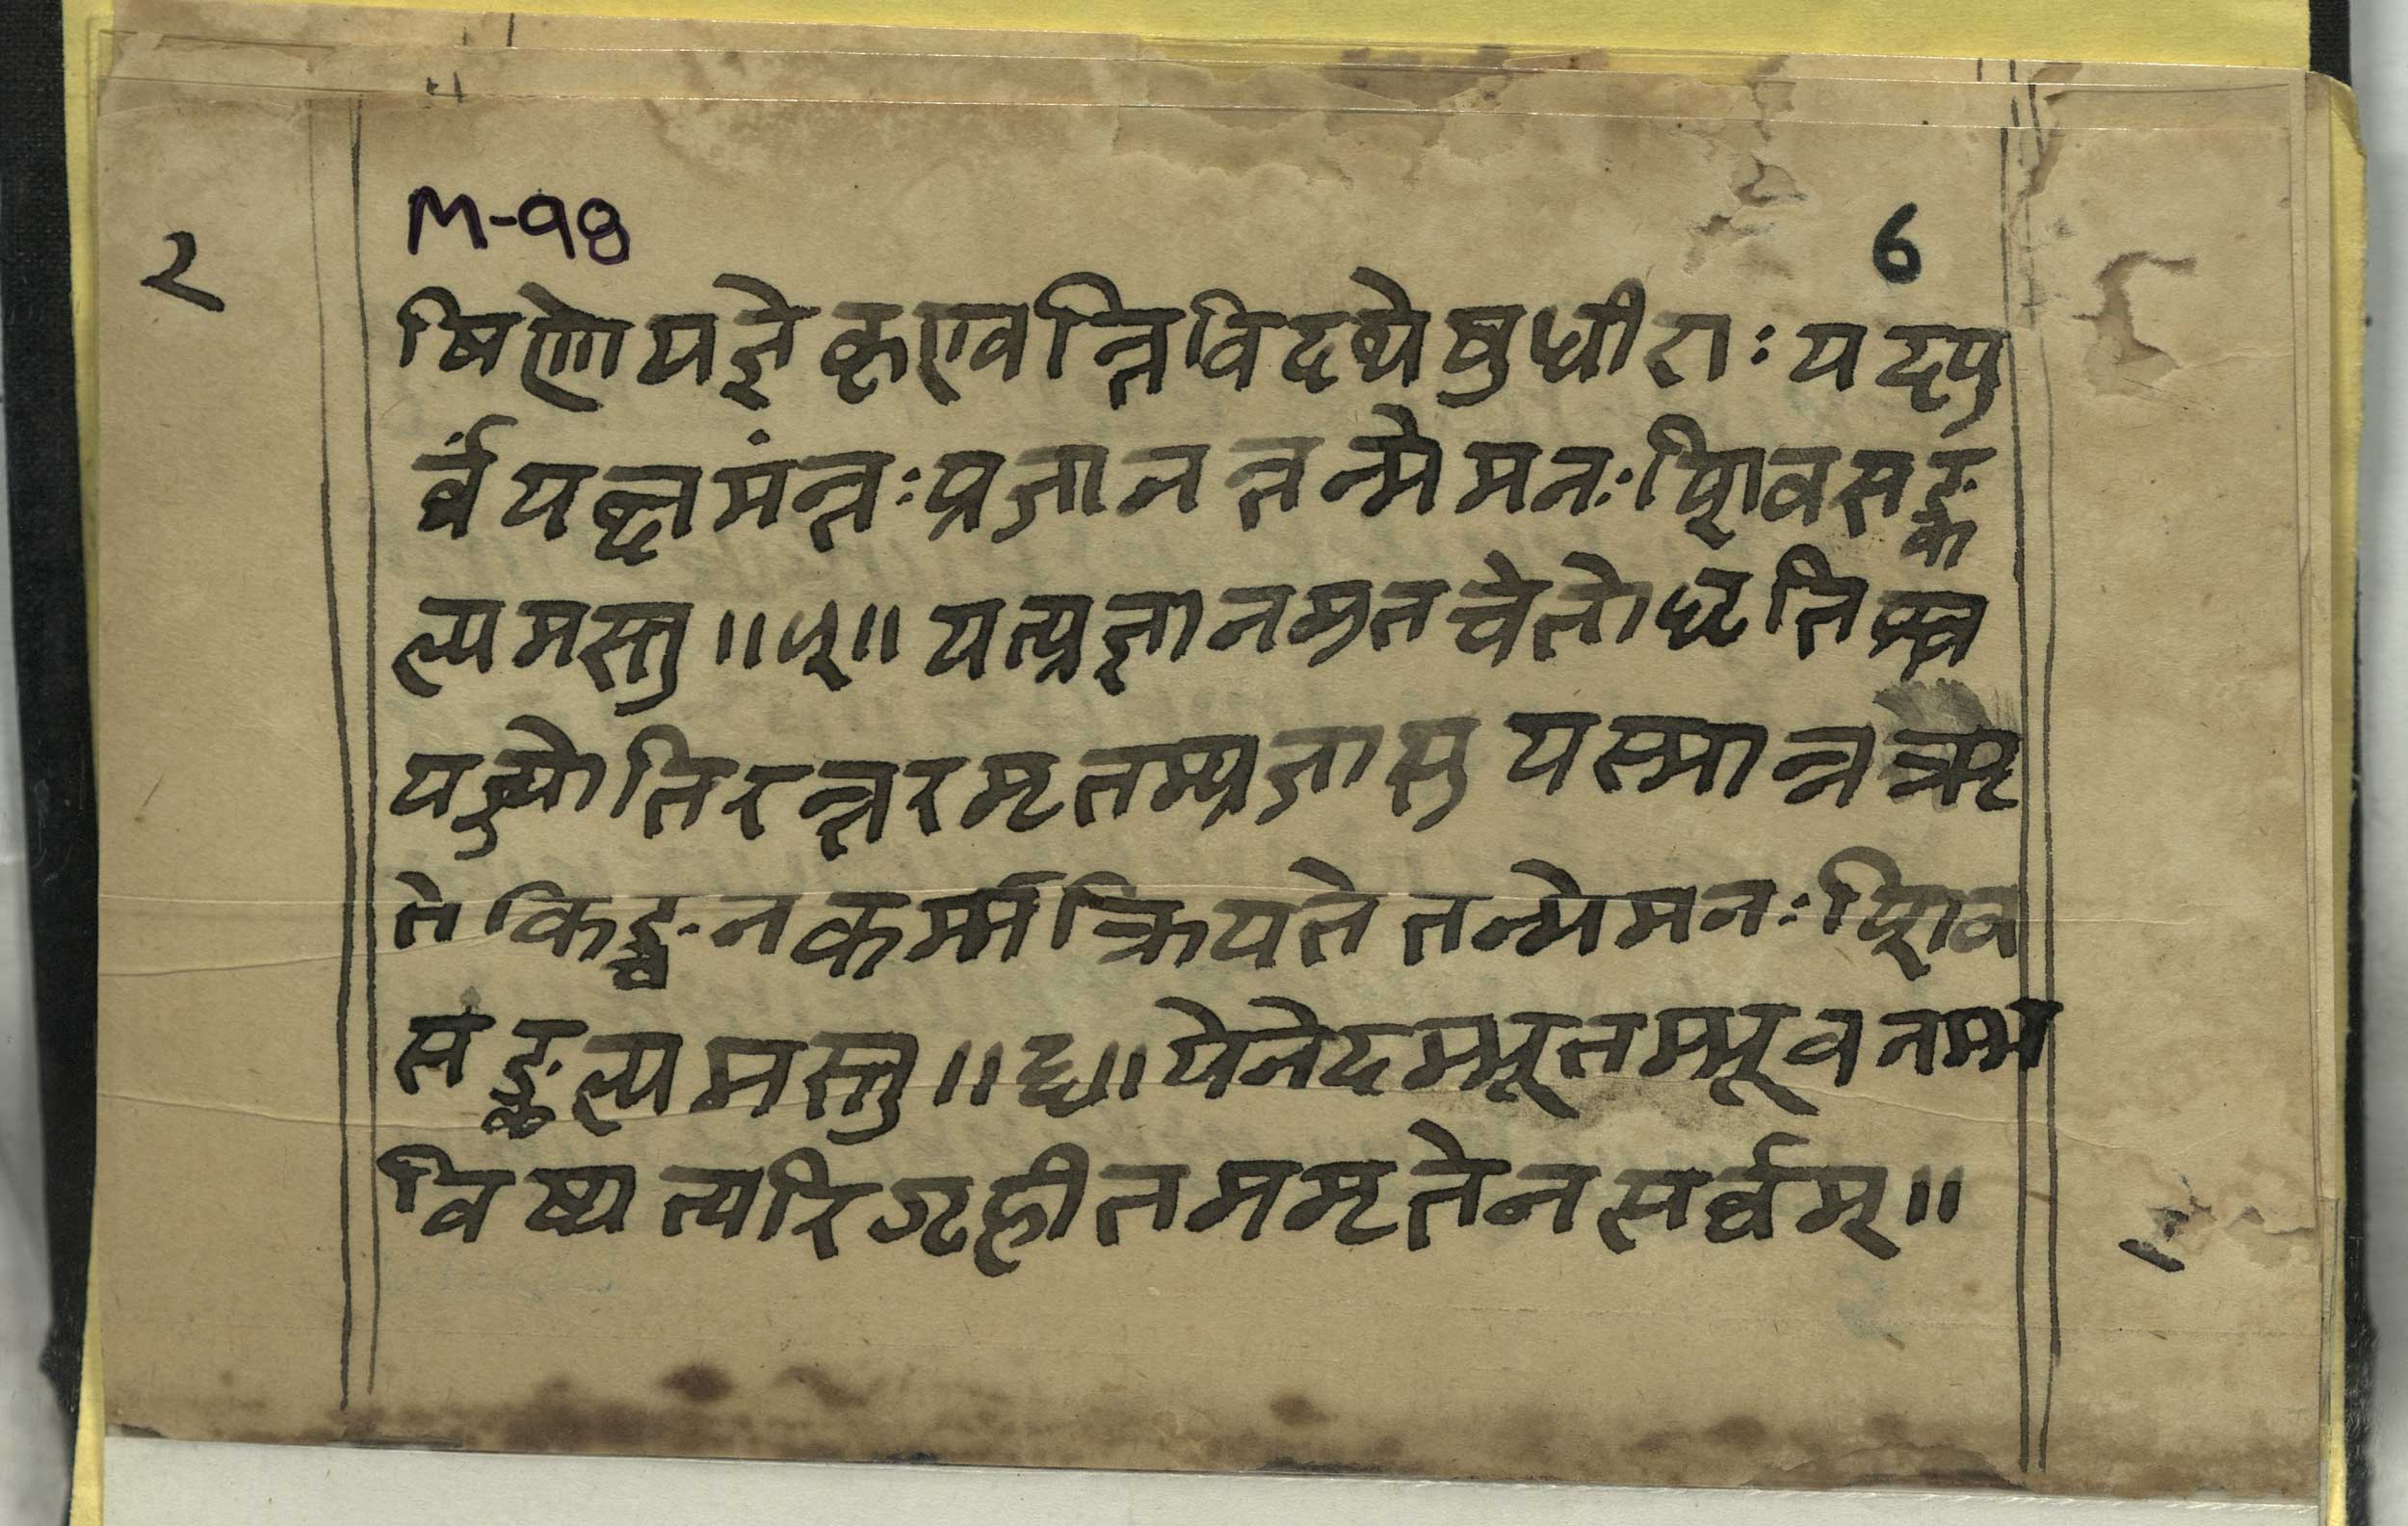 M-98
6
२
षिणो यज्ञे कृण्वन्ति विदथेषु धीराः यदपु
र्वं यक्ष्मंन्तः प्रजानन्तन्मे मनः शिवसङ्क
ल्पमस्तु ॥५॥ यत्प्रज्ञानमुत चेतो धृतिश्च
यज्ज्योतिरन्तरमृतम्प्रजासु यस्मान्नऋ
ते किङ्चन कर्म्म क्रियते तन्मे मनः शिव
सङ्कल्पमस्तु ॥६॥ येनेदम्भूतम्भूवनम्भ
विष्यत्परिगृहीतममृतेन सर्वम् ॥